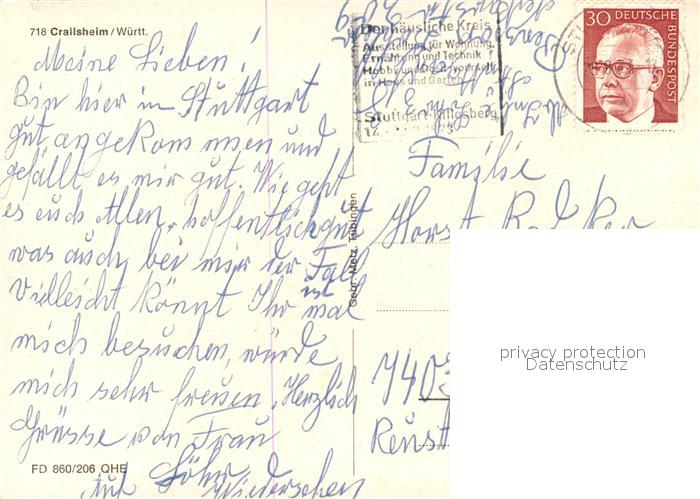 718 Crailsheim / Württ.
Meine Lieben!
Bin hier in Stuttgart
gut angekommen und
gefällt es mir gut. Wie geht
es euch Allen, hoffentlich gut
was auch bei mir der Fall
ist
Vielleicht könnt Ihr mal
mich besuchen, würde
mich sehr freuen. Herzlich
Grüsse von Frau
Auf Wiedersehen
FD 860/206 QHE
Gebr. Metz, Tübingen
Der häusliche Kreis
Ausstellung für Wohnung,
Ernährung und Technik
Hobby und do-it-yourself
in Haus und Garten
Stuttgart-Killesberg
30 DEUTSCHE
BUNDESPOST
Familie
Horst
740
Reust
privacy protection
Datenschutz